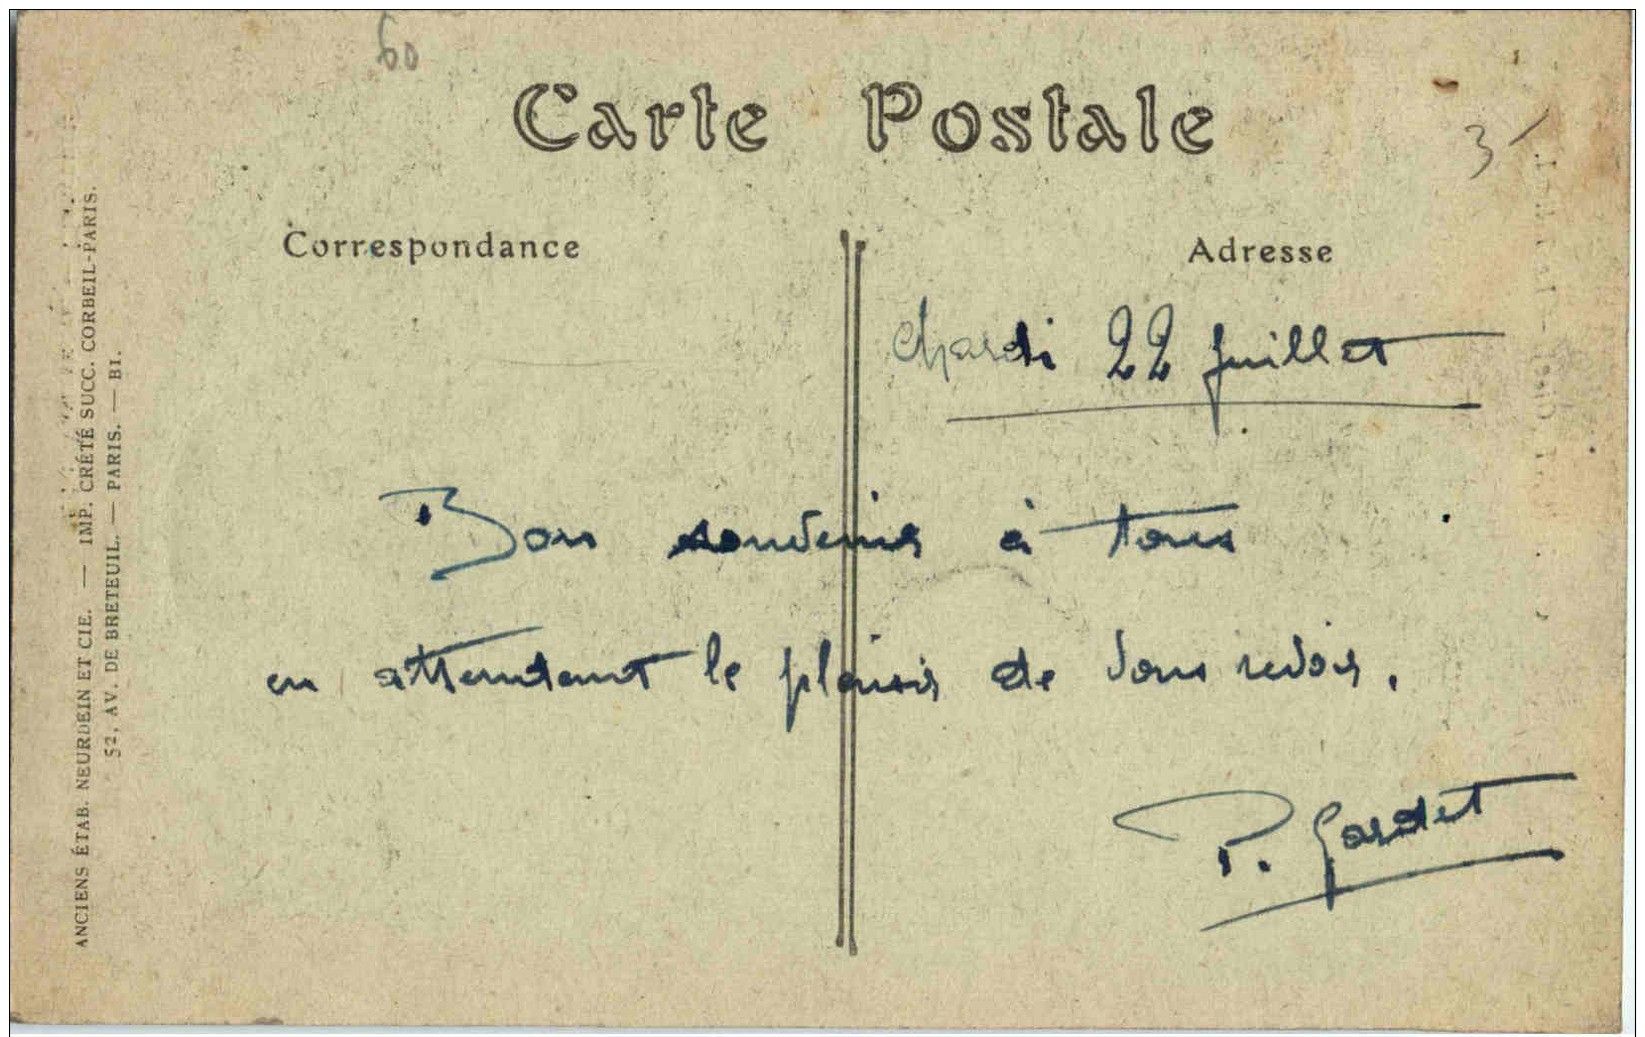 60
Carte Postale
3
Correspondance
Adresse
Mardi 22 Juillet
Bon souvenir à tous
en attendant le plaisir de vous revoir.
P. Gardet
ANCIENS ÉTAB. NEURDEIN ET CIE. — IMP. CRÉTÉ SUCC. CORBEIL-PARIS.
52, AV. DE BRETEUIL. — PARIS. — BI.